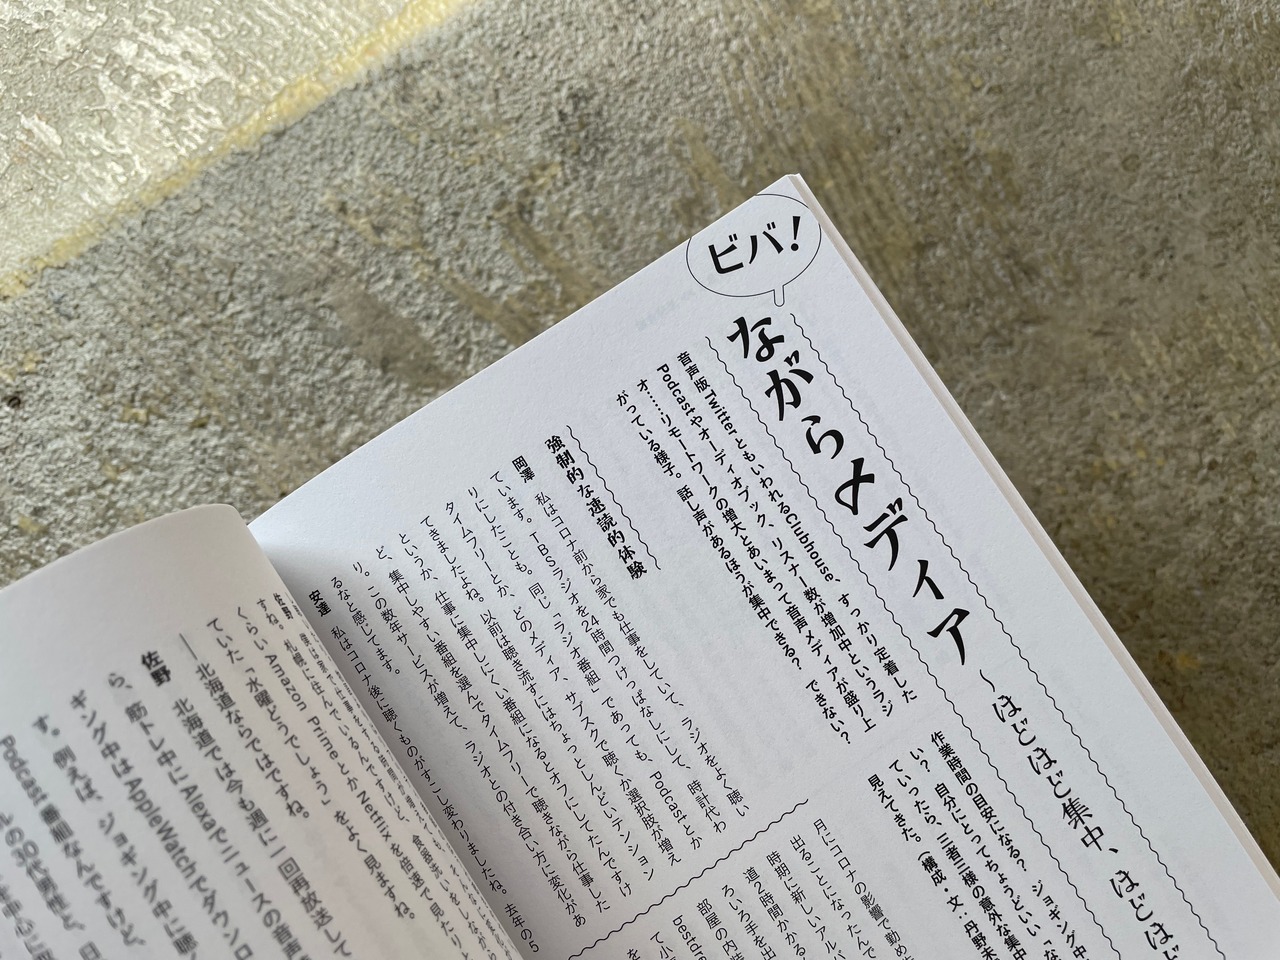 ビバ!
ながらメディア
〜ほどほど集中、ほどほど
音声版TwitterともいわれるClubhouse、すっかり定着した
Podcastやオーディオブック、リスナー数が増加中というラジ
オ……リモートワークの増大とあいまって音声メディアが盛り上
がっている様子。話し声があるほうが集中できる? できない?
作業時間の目安になる? ジョギング中
い? 自分にとってちょうどいい「な
ていったら、三者三様の意外な集中
見えてきた。(構成・文:丹野未
強制的な速読的体験
岡澤 私はコロナ前から家でも仕事をしていて、ラジオをよく聴い
ています。TBSラジオを24時間つけっぱなしにして、時計代わ
りにしたことも。同じ「ラジオ番組」であっても、Podcastとか
タイムフリーとか、どのメディア、サブスクで聴くか選択肢が増え
てきましたよね。以前は聴き流すにはちょっとしんどいテンション
というか、仕事に集中しにくい番組になるとオフにしてたんですけ
ど、集中しやすい番組を選んでタイムフリーで聴きながら仕事した
り。この数年サービスが増えて、ラジオとの付き合い方に変化があ
るなと感じてます。
安達 私はコロナ後に聴くものがすこし変わりましたね。去年の5
月にコロナの影響で勤め
出ることになったんで
時期に新しいアルバ
道2時間かかる
ろいろ手を出
部屋の内装
bestch
て小
を
佐野
すね。札幌に住んでいるんですけど、食器洗いをしながら
くらい。Amazon PrimeとかNetflixを倍速で見たりと
ていた「水曜どうでしょう」をよく見ますね。
── 北海道ならではですね。
佐野 北海道では今も週に一回再放送して
ら、筋トレ中にAlexaでニュースの音声
ギング中はAppleWatchでダウンロ
す。例えば、ジョギング中に聴
Podcast番組なんですけど、
ルの30代男性と、日